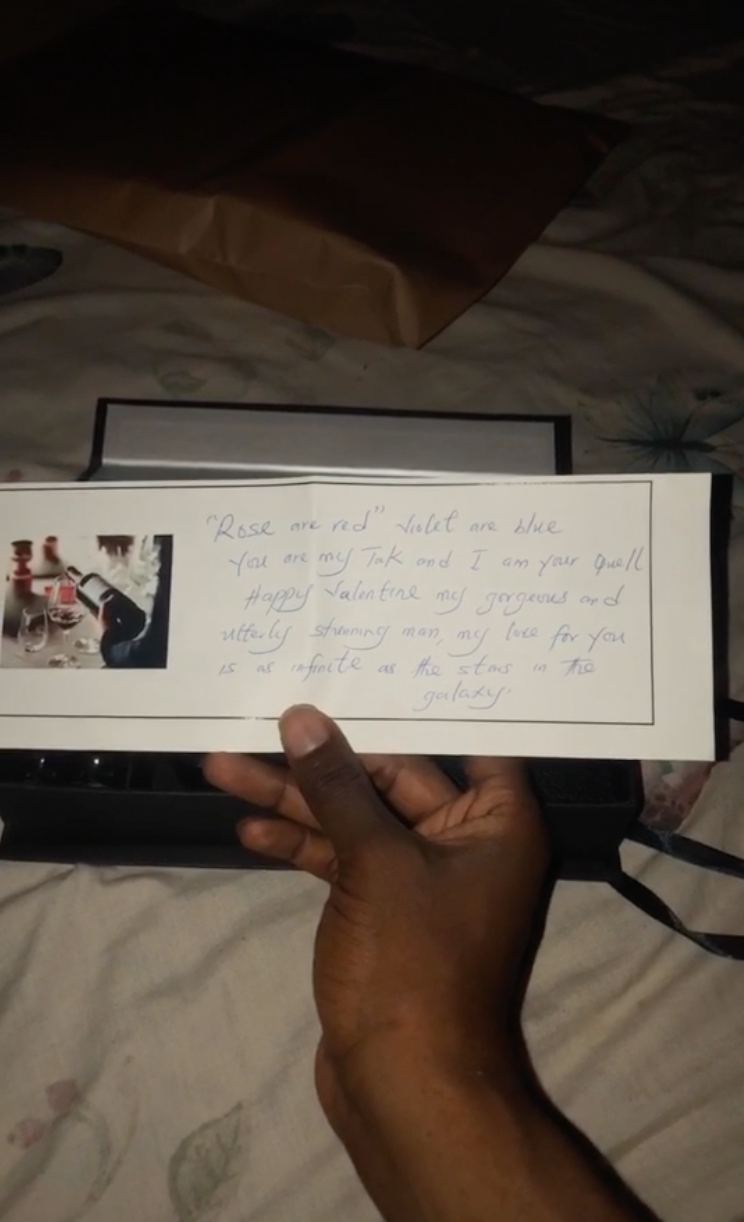 "Rose are red" Violet are blue
You are my Tak and I am your Quell
Happy Valentine my gorgeous and
utterly stunning man, my love for you
is as infinite as the stars in the
galaxy.